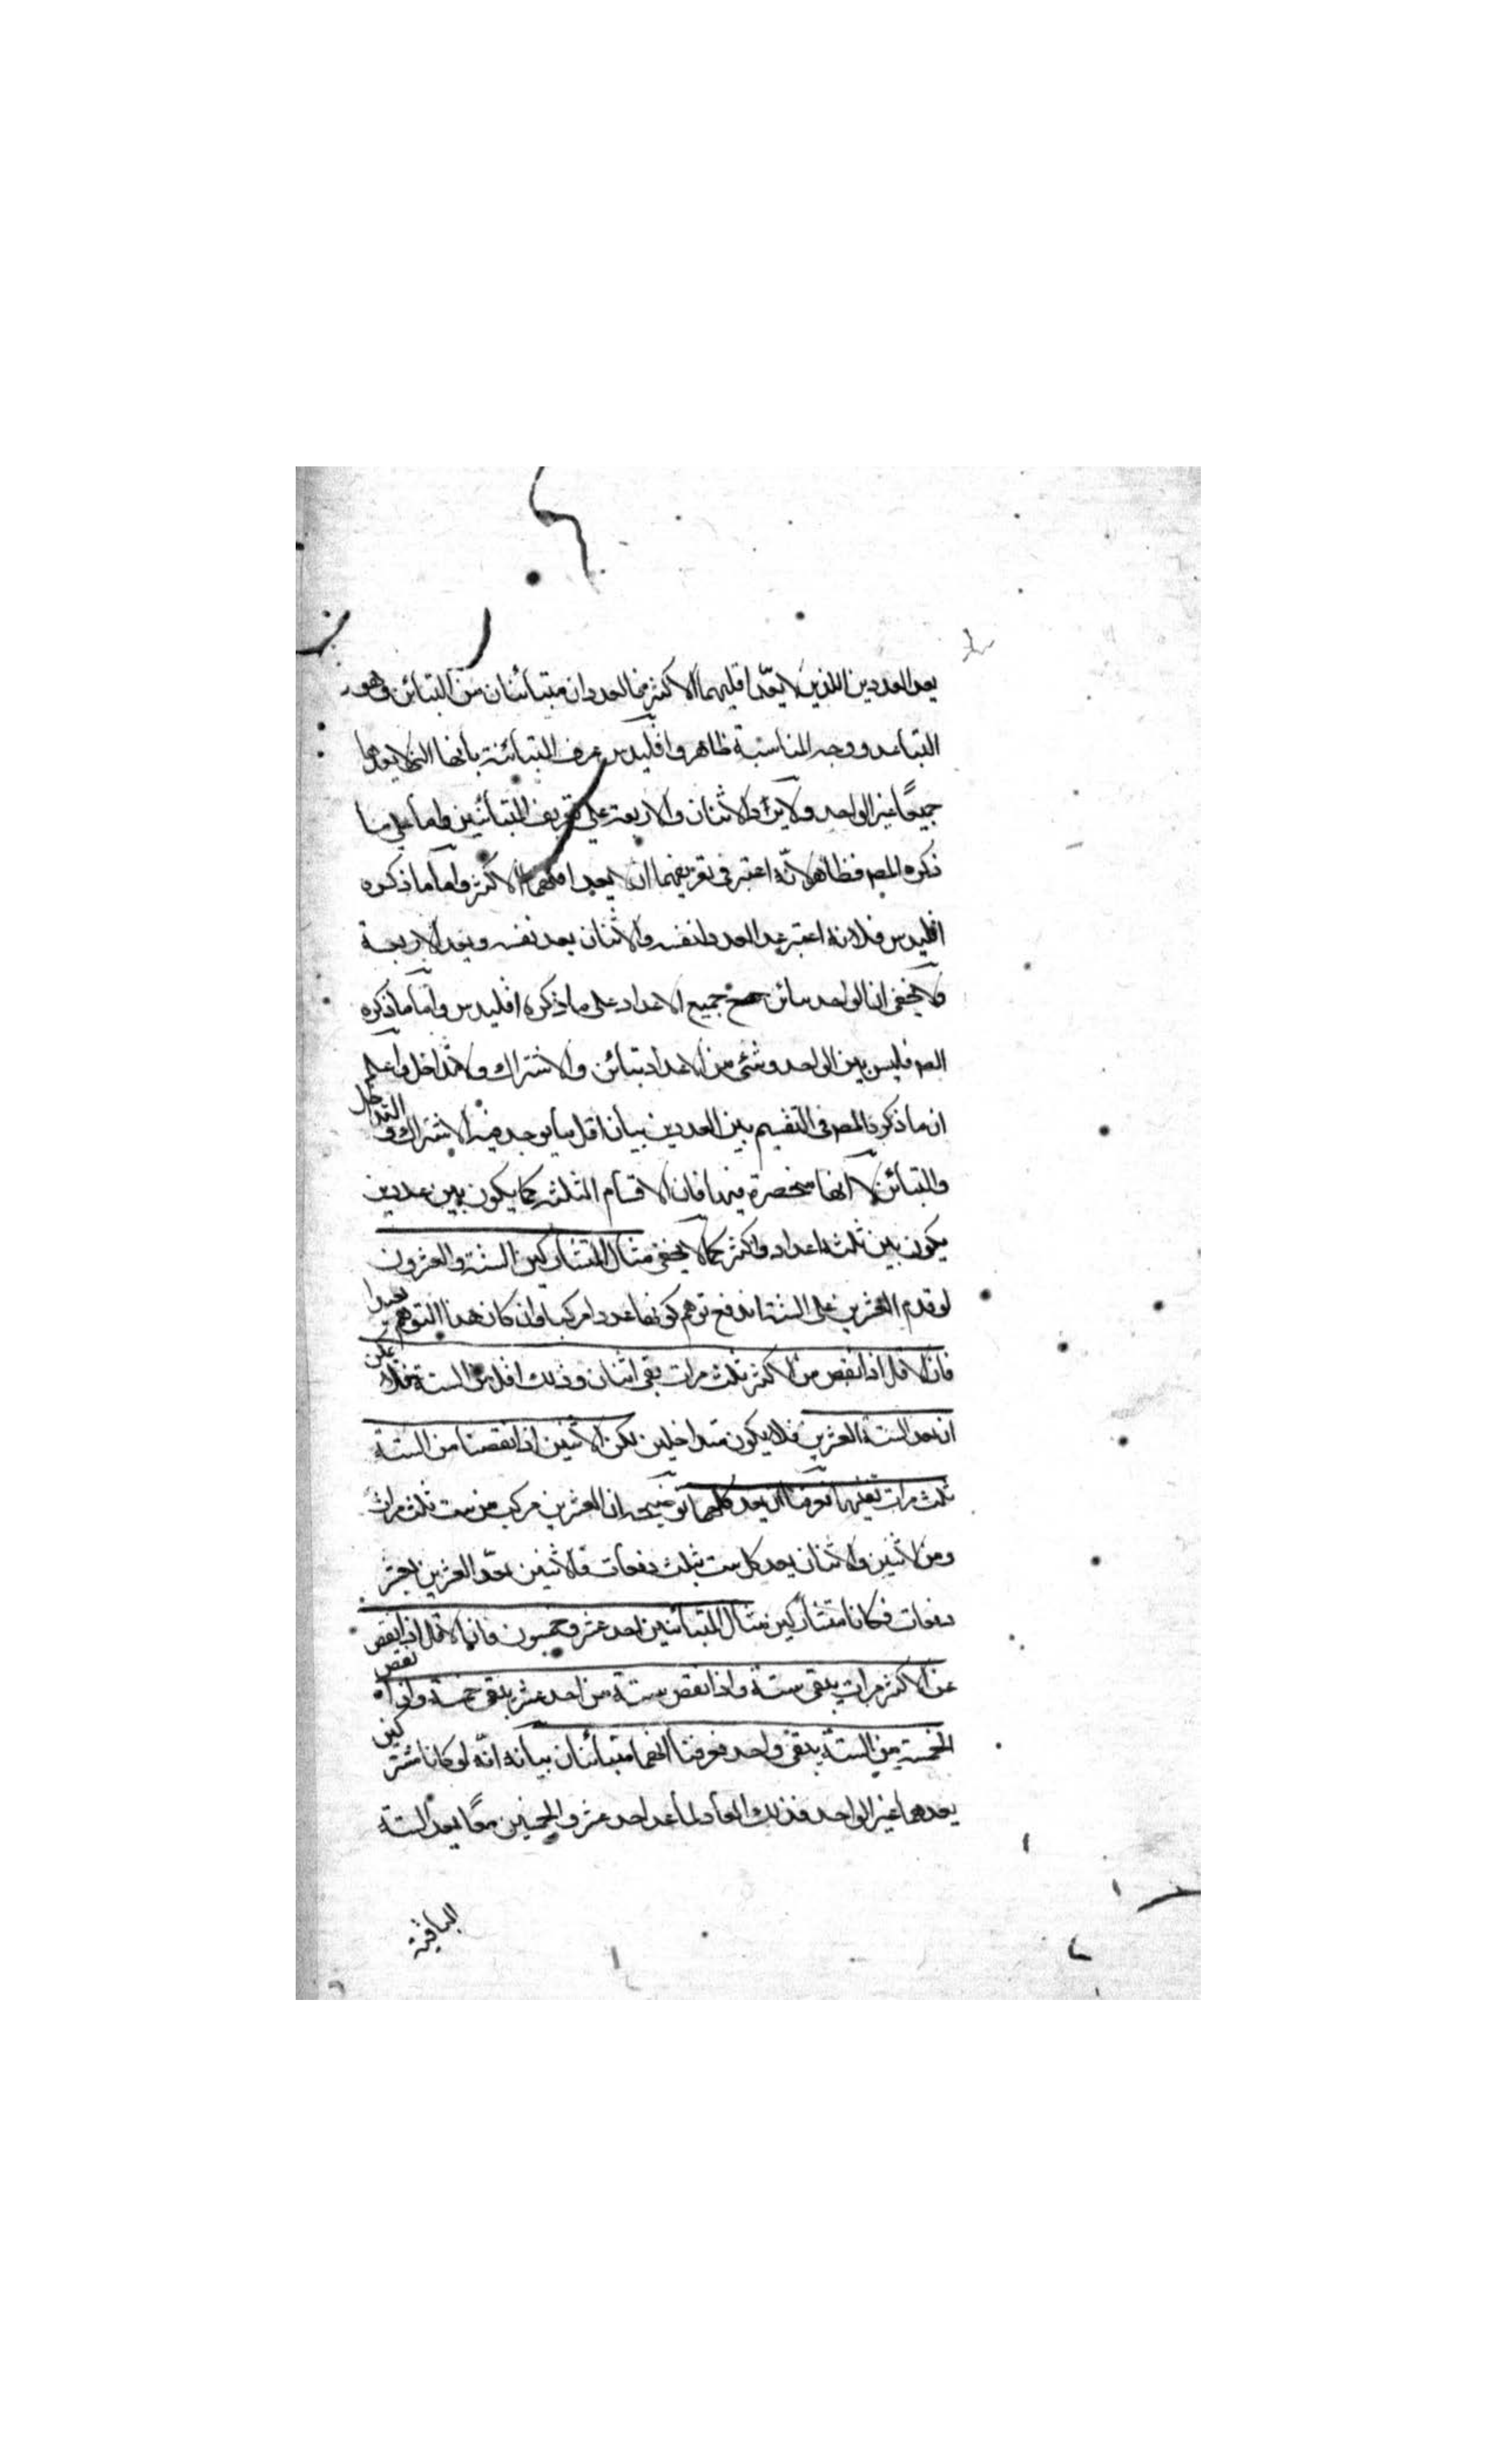 يعد العددين اللذين لا يعدّ اقليهما الاكثر فالعددان متبائنان من التبائن وهو
التباعد ووجه المناسبة ظاهر واقليدس عرف المتبائنة بانها التى لا يعدها
جميعًا غير الواحد ولا يرد الاثنان والاربعة على تعريف المتبائنين واما على ما
ذكره المصـ فظاهر لانّه اعتبر فى تعريفهما ان لا يعد اقلهما الاكثر واما ما ذكره
اقليدس فلانه اعتبر عد العدد لنفسه والاثنان يعد نفسه ويعد الاربعة
ولا يخفى ان الواحد مبائن جميع الاعداد على ما ذكره اقليدس واما ما ذكره
المصـ فليس بين الواحد وشئ من الاعداد تبائن ولا اشتراك ولا تداخل واعلم
ان ما ذكره المصـ فى التقسيم بين العددين بيان اقل ما يوجد فيه الاشتراك و التداخل
والتبائن لا انها منحصرة فيهما فان الاقسام الثلثه كما يكون بين عددين
يكون بين ثلثة اعداد واكثر كما لا يخفى مثال المتشاركين الستة والعشرون
لو قدم العشرين على الستة اندفع توهم كونهما عددا مركبا وان كان هذا التوهم بعيدا
فان الاقل اذا نقص من الاكثر ثلث مرات بقى اثنان وذلك اقل من الستة فلا يمكن
ان يعد الستة العشرين فلا يكون متداخلين لكن الاثنين اذا نقصنا من الستة
ثلث مرات تفنيها فعرفنا ان يعد كلهما توضيحه ان العشرين مركب من ست ثلث مرات
ومن الاثنين والاثنان يعد كل ست بثلث دفعات فالاثنين تعدّ العشرين بعشر
دفعات فكانا متشاركين مثال المتبائنين احد عشر وخمسون فان الاقل اذا نقص
عن الاكثر مرات يبقى ستة واذا نقص ستة من احد عشر يبقى خمسة واذا نقص
الخمسة من الستة يبقى واحد فعرفنا انهما متبائنان بيانه انّه لو كانا مشتركين
يعدهما غير الواحد فذلك العاد لما عد احد عشر والخمسين معًا يعد الستة
الباقية